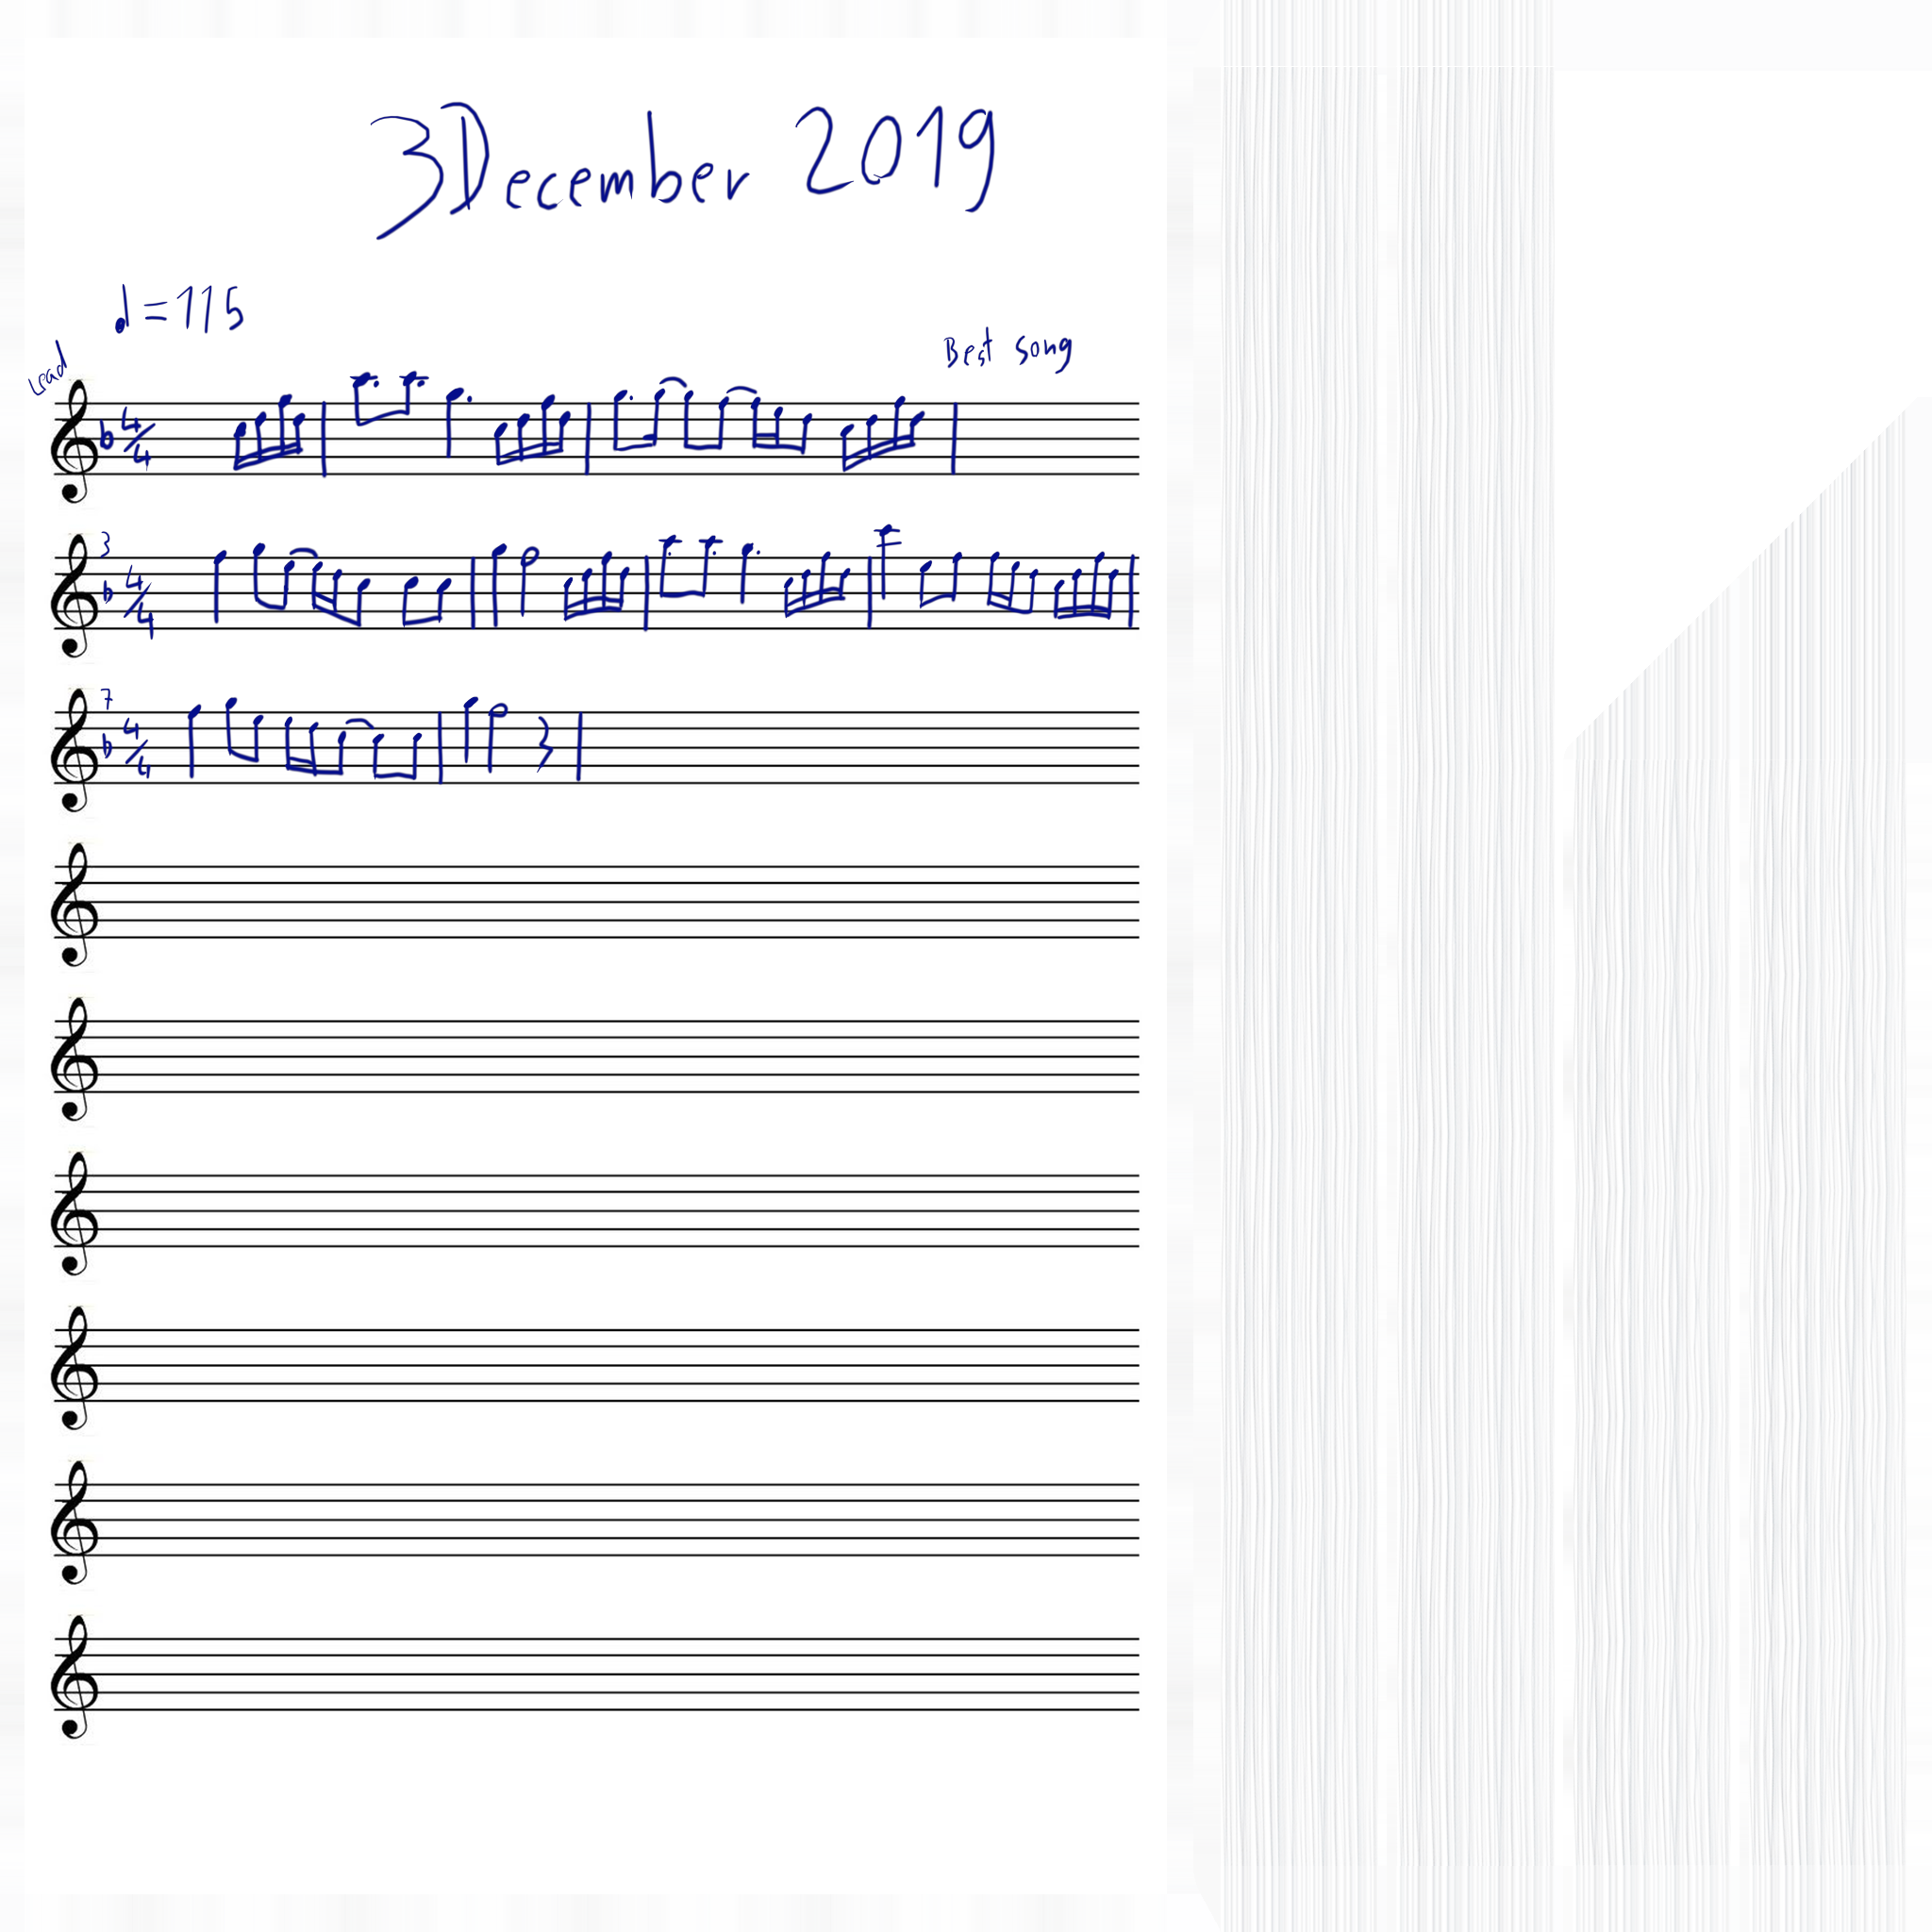 3 December 2019
♩=115
Best song
Lead
4/4
3
4/4
7
4/4